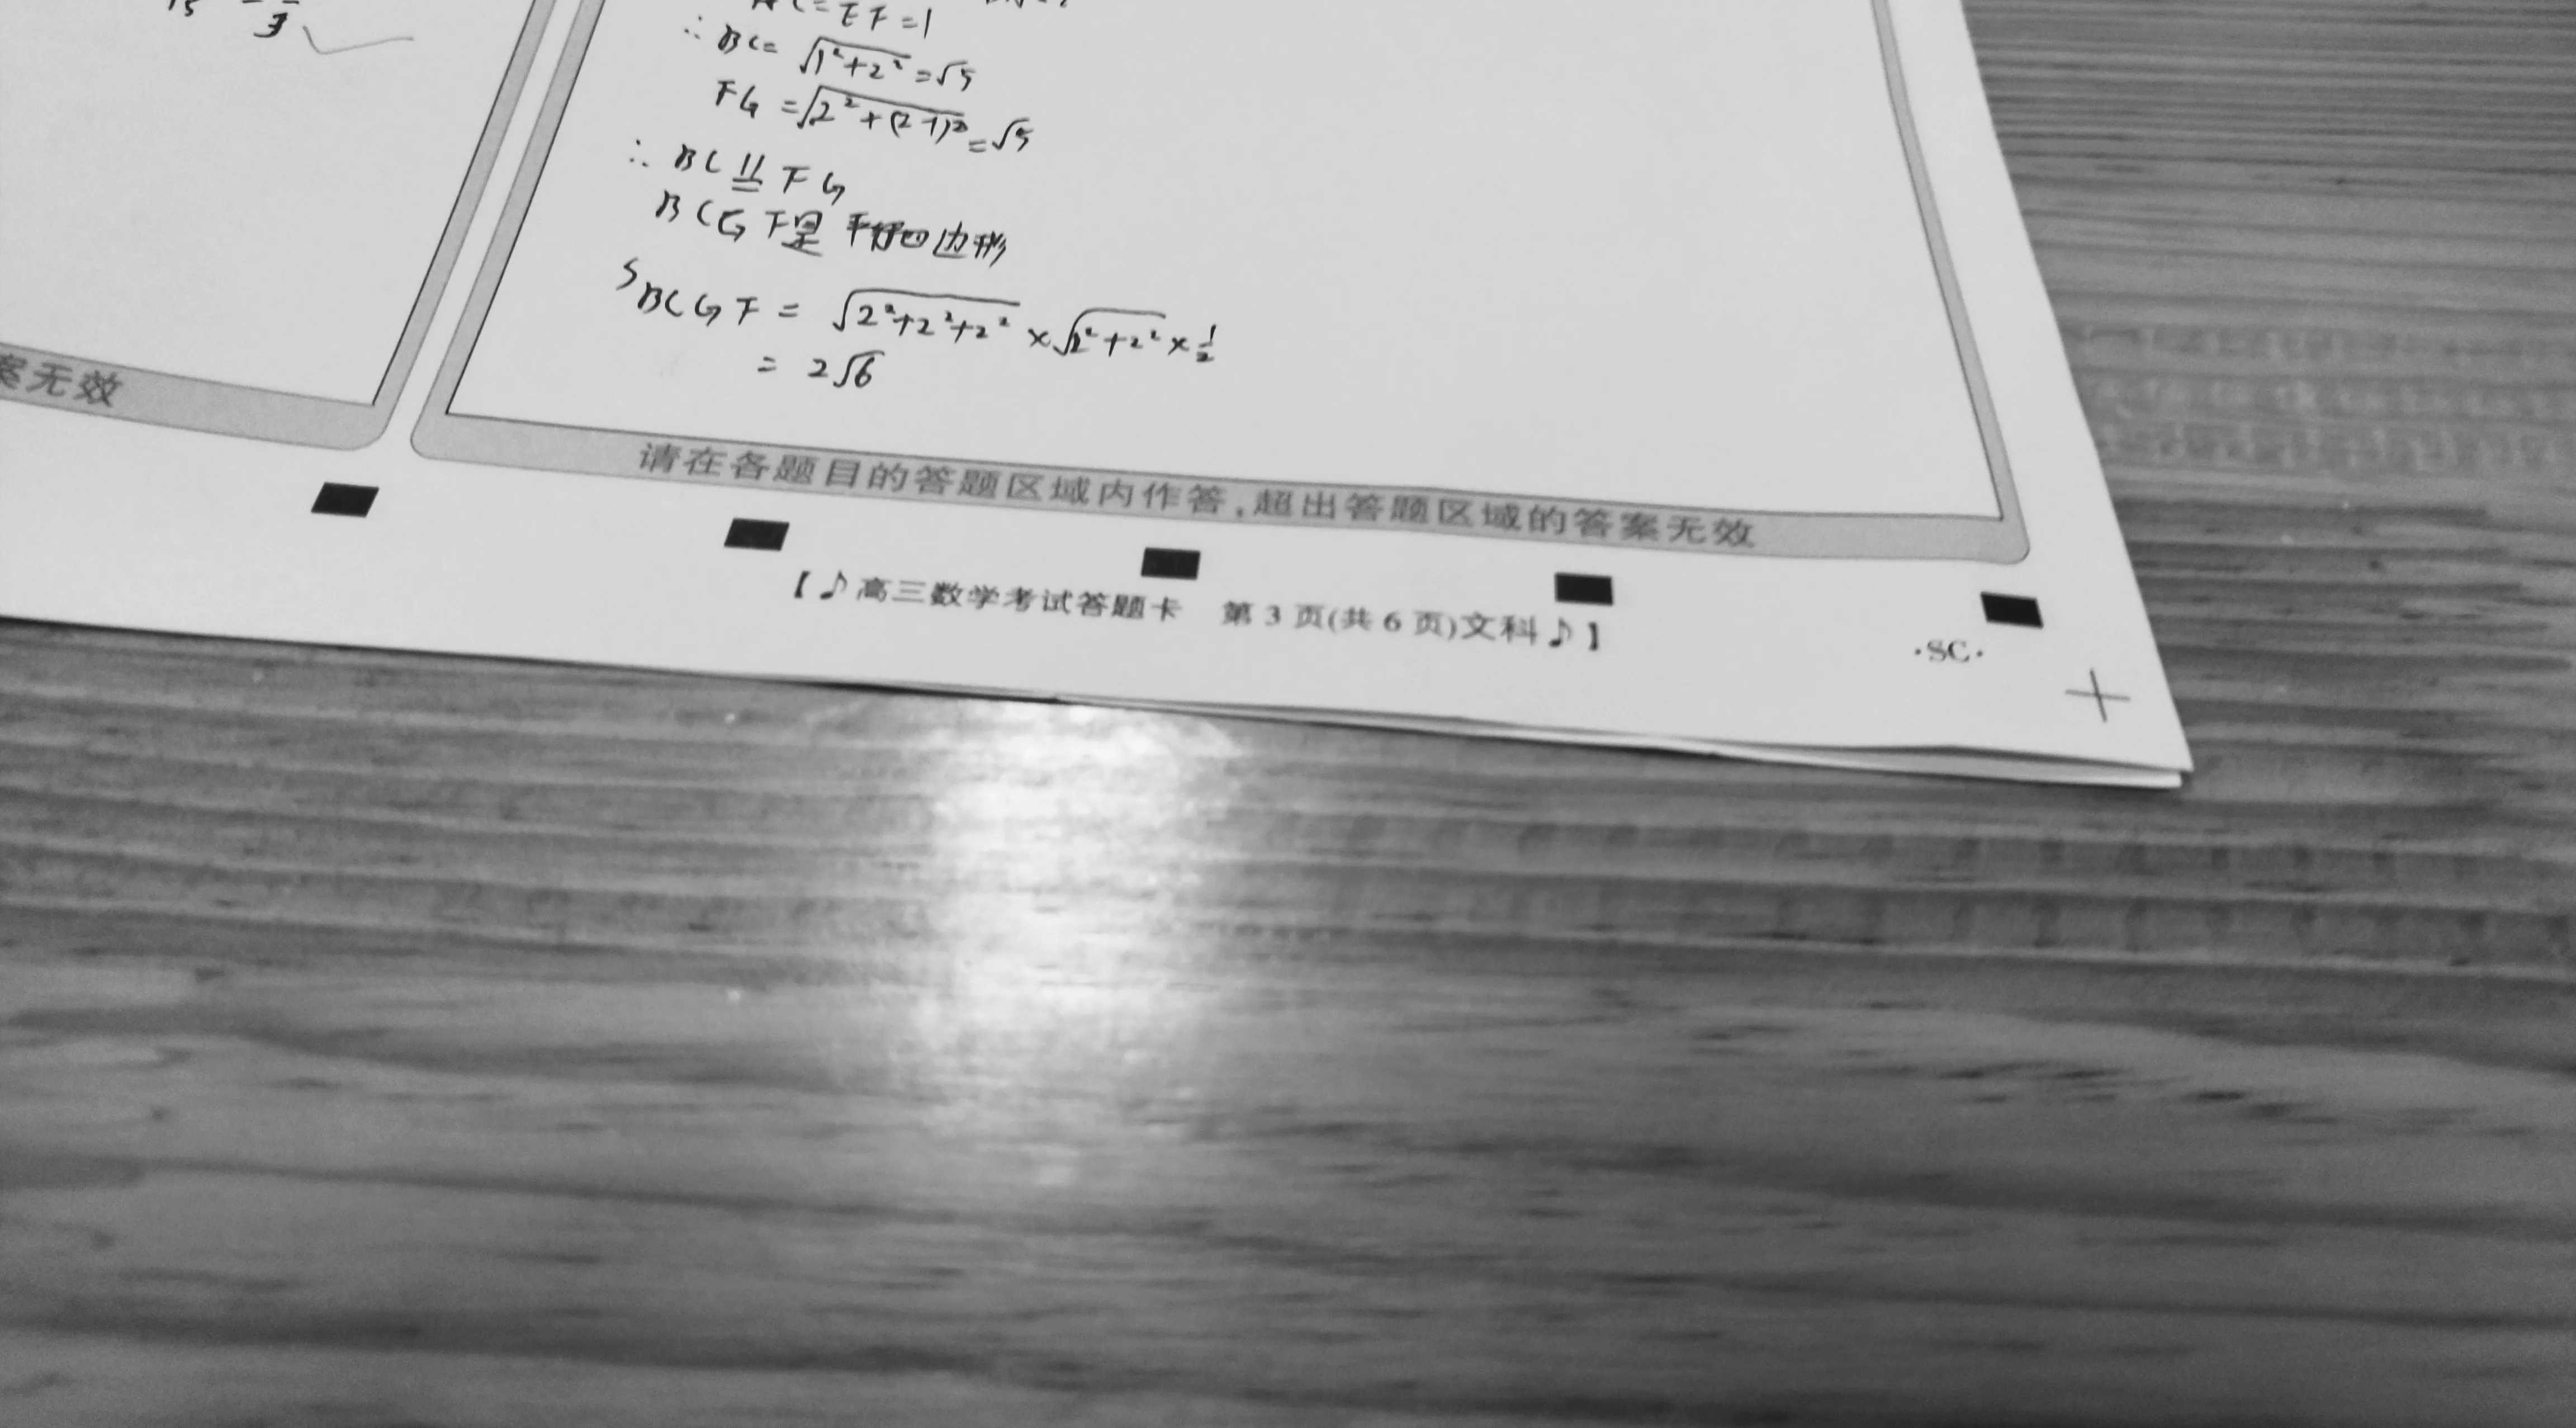 = EF = 1
∴ BC = √(1²+2²) = √5
FG = √(2²+(2-1)²) = √5
∴ BC ∥= FG
BCGF是 平行四边形
S BCGF = √(2²+2²+2²) × √(2²+2²) × 1/2
= 2√6
案无效
请在各题目的答题区域内作答,超出答题区域的答案无效
【♪高三数学考试答题卡 第 3 页(共 6 页)文科♪】
·SC·